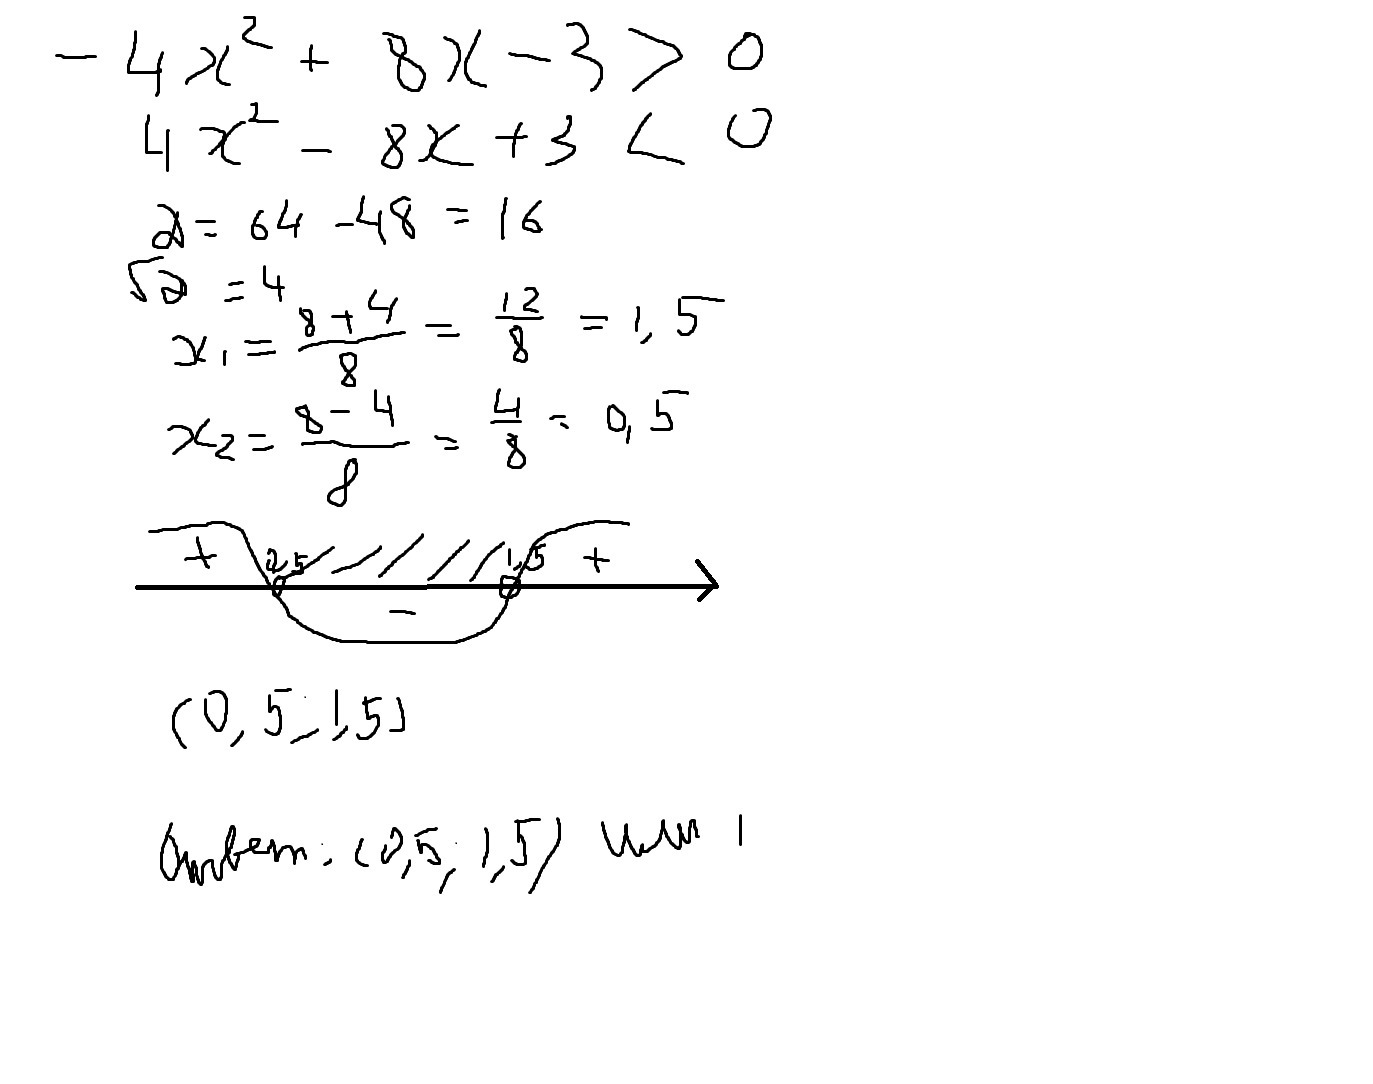 - 4x² + 8x - 3 > 0
4x² - 8x + 3 < 0
D = 64 - 48 = 16
√D = 4
x₁ = (8 + 4)/8 = 12/8 = 1,5
x₂ = (8 - 4)/8 = 4/8 = 0,5
+ 0,5 - 1,5 +
(0,5; 1,5)
Ответ: (0,5; 1,5) или 1